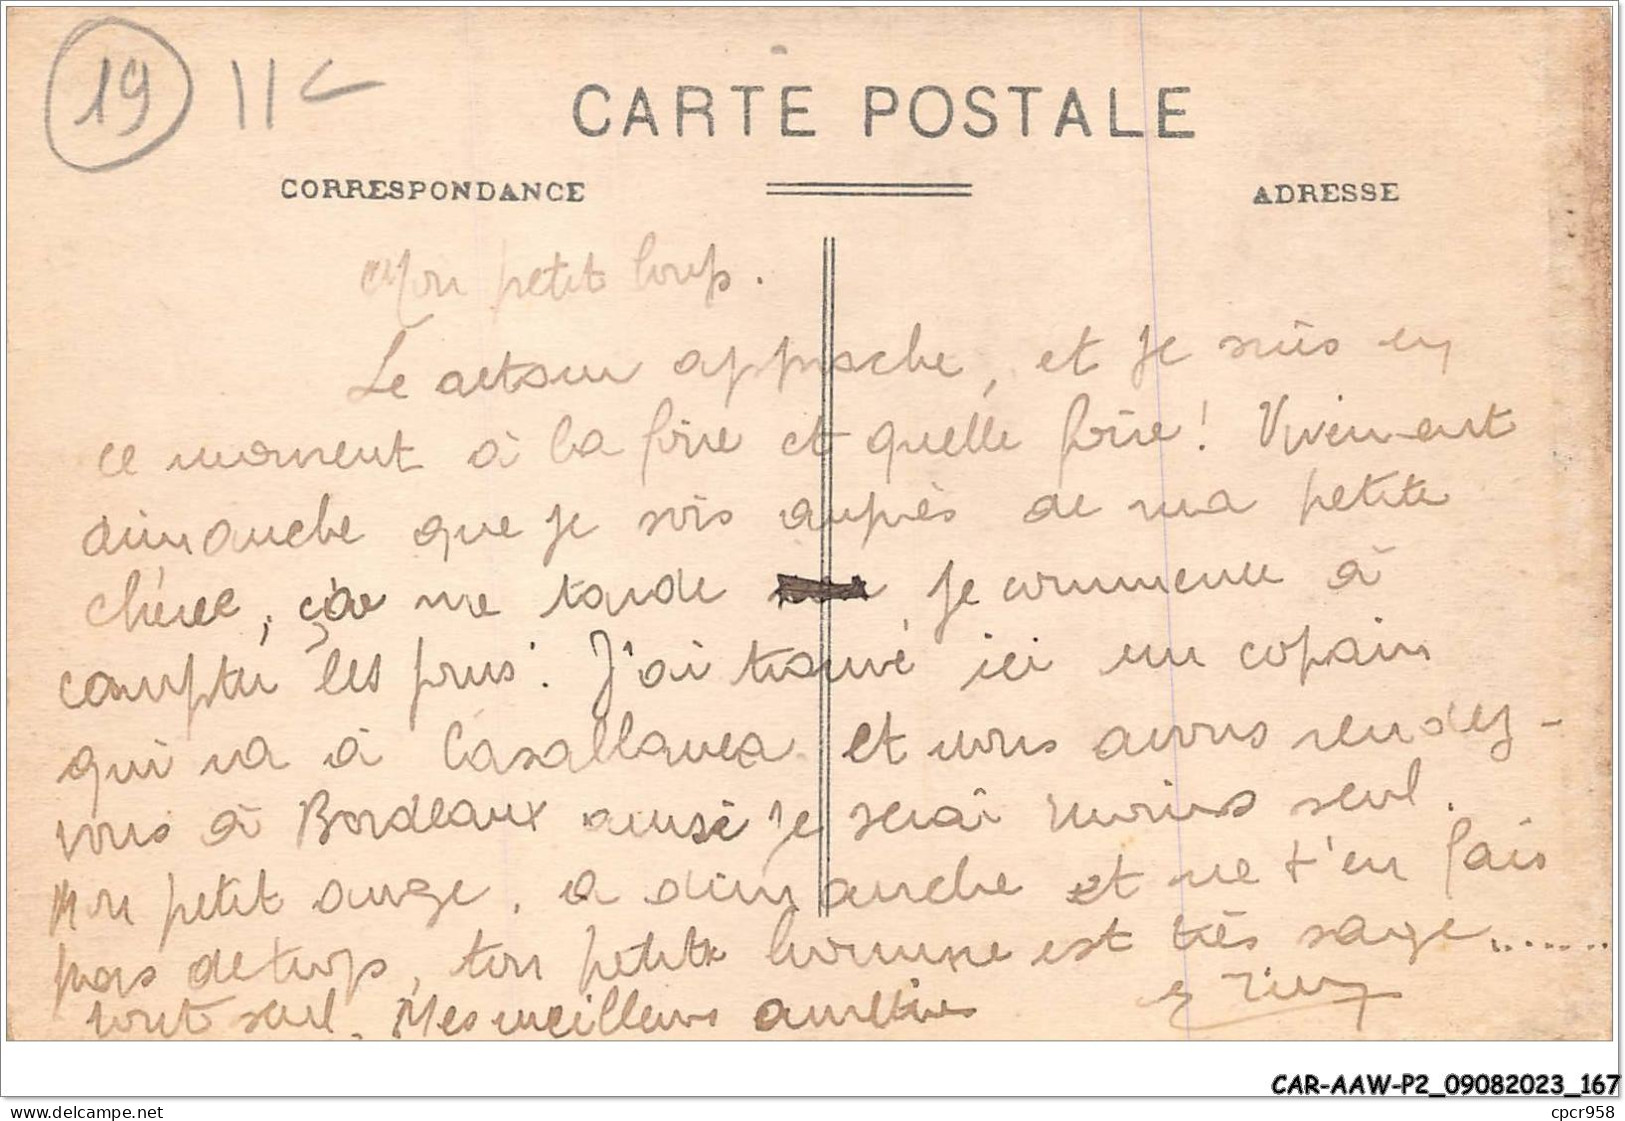 19 11
CARTE POSTALE
CORRESPONDANCE
ADRESSE
Mon petit loup.
Le retour approche, et je suis en
ce moment à la foire et quelle foire! Vivement
dimanche que je sois auprès de ma petite
chérie, ça me tarde je commence à
compter les jours. J'ai trouvé ici un copain
qui va à Casablanca et nous avons rendez-
vous à Bordeaux aussi je serai moins seul.
Mon petit ange, a dimanche et ne t'en fais
pas de trop, ton petit homme est très sage.......
tout seul. Mes meilleurs amitiés
CAR-AAW-P2_09082023_167
delcampe.net
cpcr958